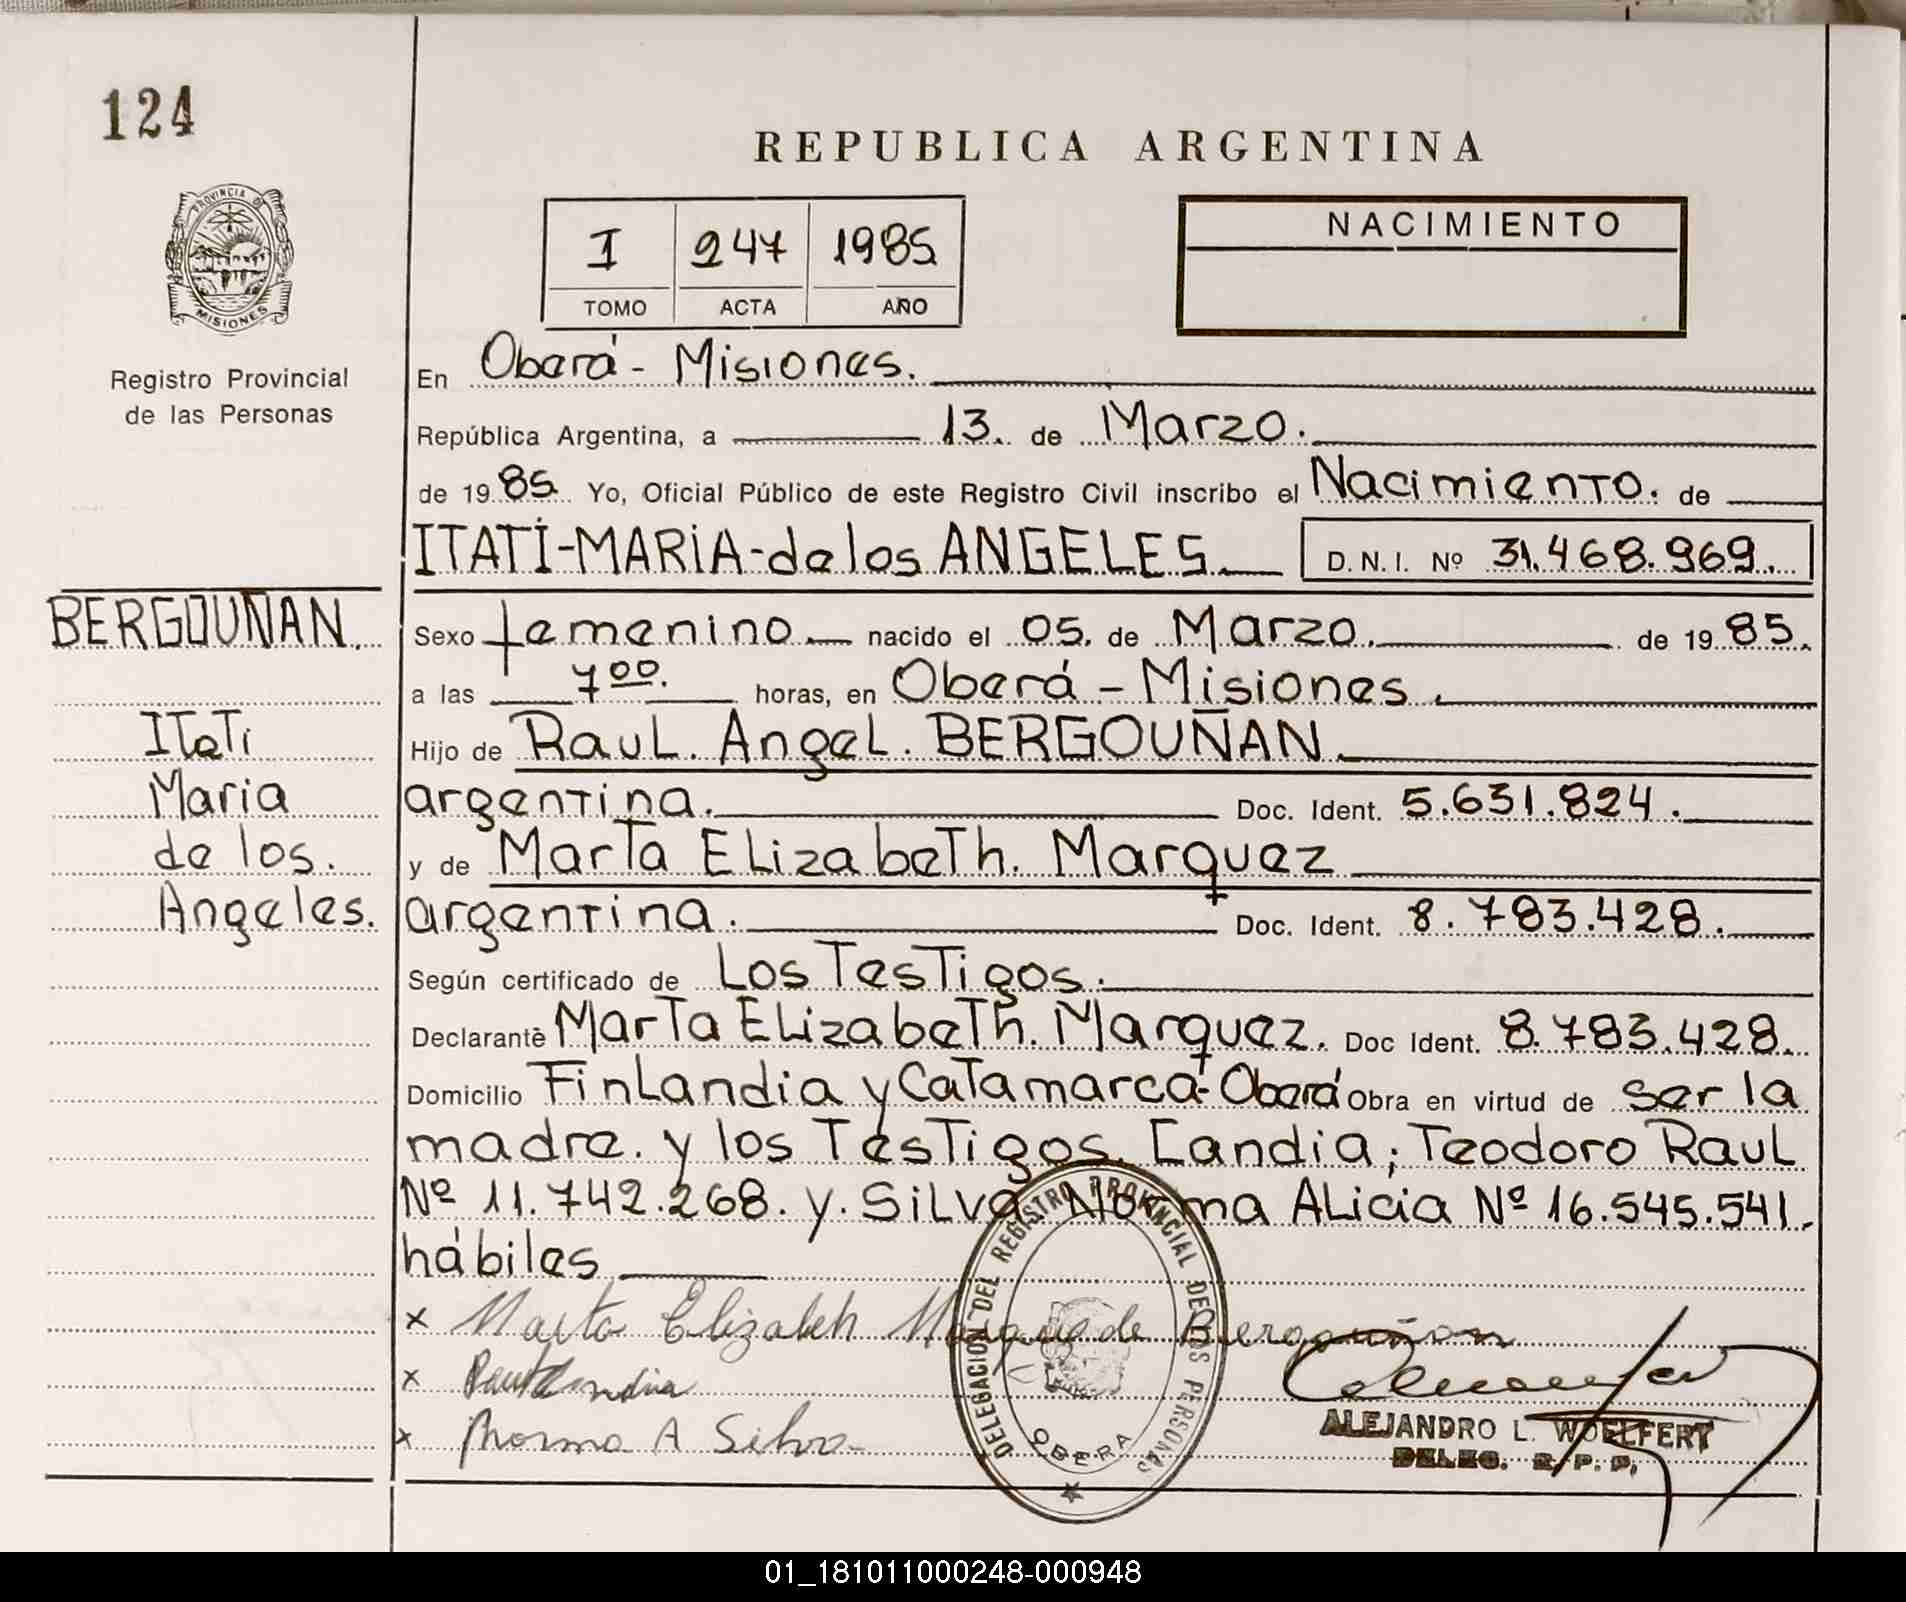 124
REPUBLICA ARGENTINA
I 247 1985
TOMO ACTA AÑO
NACIMIENTO
PROVINCIA DE
MISIONES
Registro Provincial
de las Personas
En Oberá - Misiones.
República Argentina, a 13. de Marzo.
de 19 85 Yo, Oficial Público de este Registro Civil inscribo el Nacimiento. de
ITATÍ-MARÍA-de los ANGELES D.N.I. Nº 31.468.969.
BERGOUÑAN.
Itati
Maria
de los.
Angeles.
Sexo femenino. nacido el 05. de Marzo. de 19 85.
a las 7 00. horas, en Oberá - Misiones.
Hijo de Raul. Angel. BERGOUÑAN.
argentina. Doc. Ident. 5.631.824.
y de Marta Elizabeth. Marquez
argentina. Doc. Ident. 8.783.428.
Según certificado de Los Testigos.
Declarante Marta Elizabeth. Marquez. Doc Ident. 8.783.428.
Domicilio Finlandia y Catamarca - Oberá Obra en virtud de ser la
madre. y los Testigos. Candia; Teodoro Raul
Nº 11.742.268. y. Silva Norma Alicia Nº 16.545.541.
hábiles
x Marta Elizabeh Marquez de Bergouñan
x
x Norma A Silva
DELEGACION DEL REGISTRO PROVINCIAL DE LAS PERSONAS
OBERA
ALEJANDRO L. WOELFERT
DELEG. R. P. P.
01_181011000248-000948